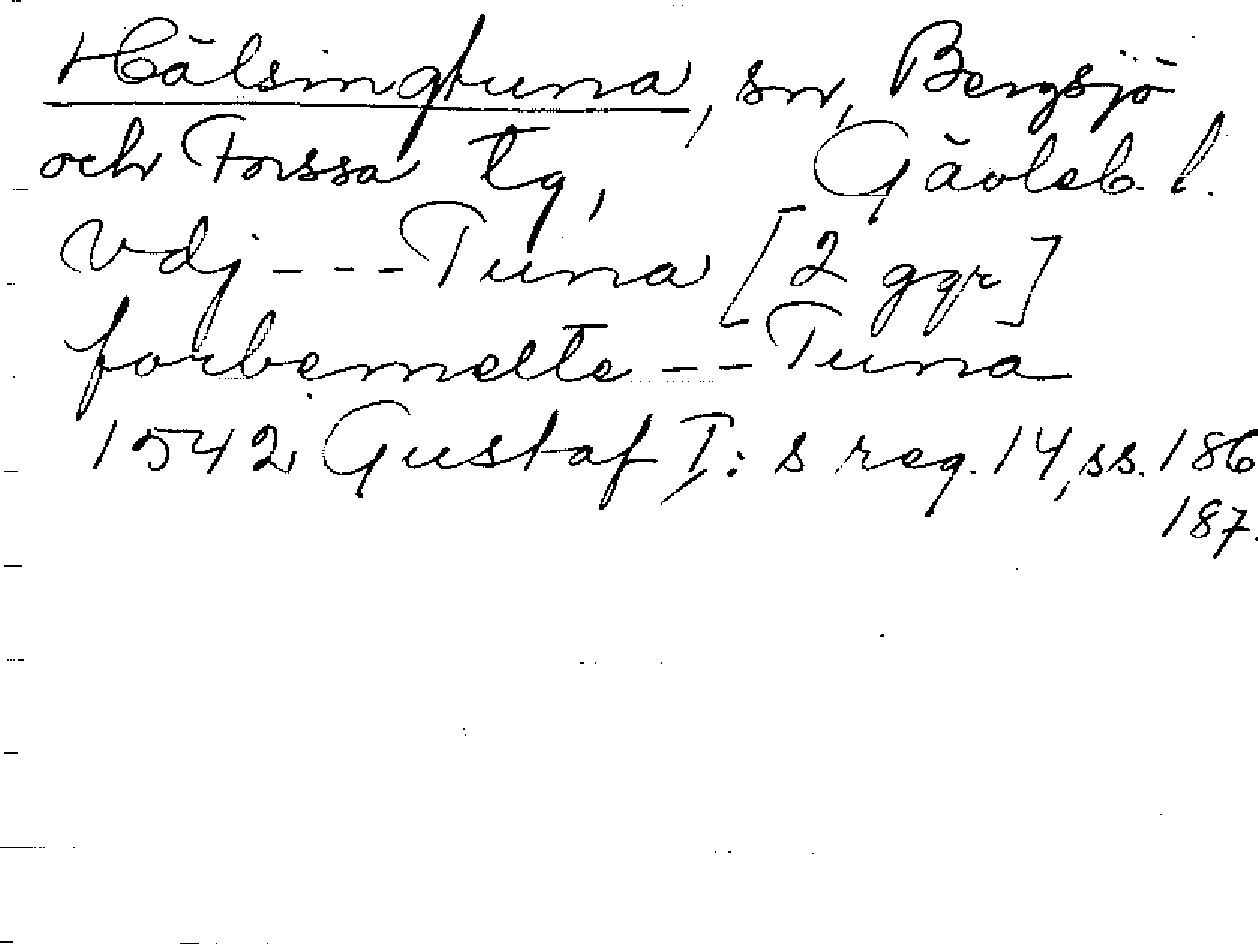 Hälsingtuna, sn, Bergsjö
och Forssa tg, Gävleb. l.
Vdj --- Tuna [2 ggr]
forbemelte -- Tuna
1542 Gustaf I:s reg. 14, ss. 186
187.